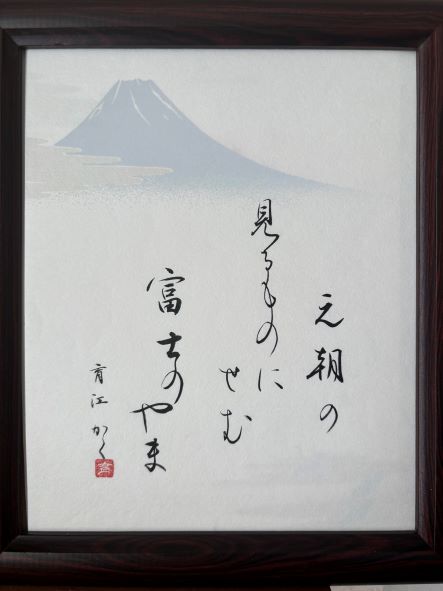 元朝の
見るものに
せむ
富士の
やま
育江かく